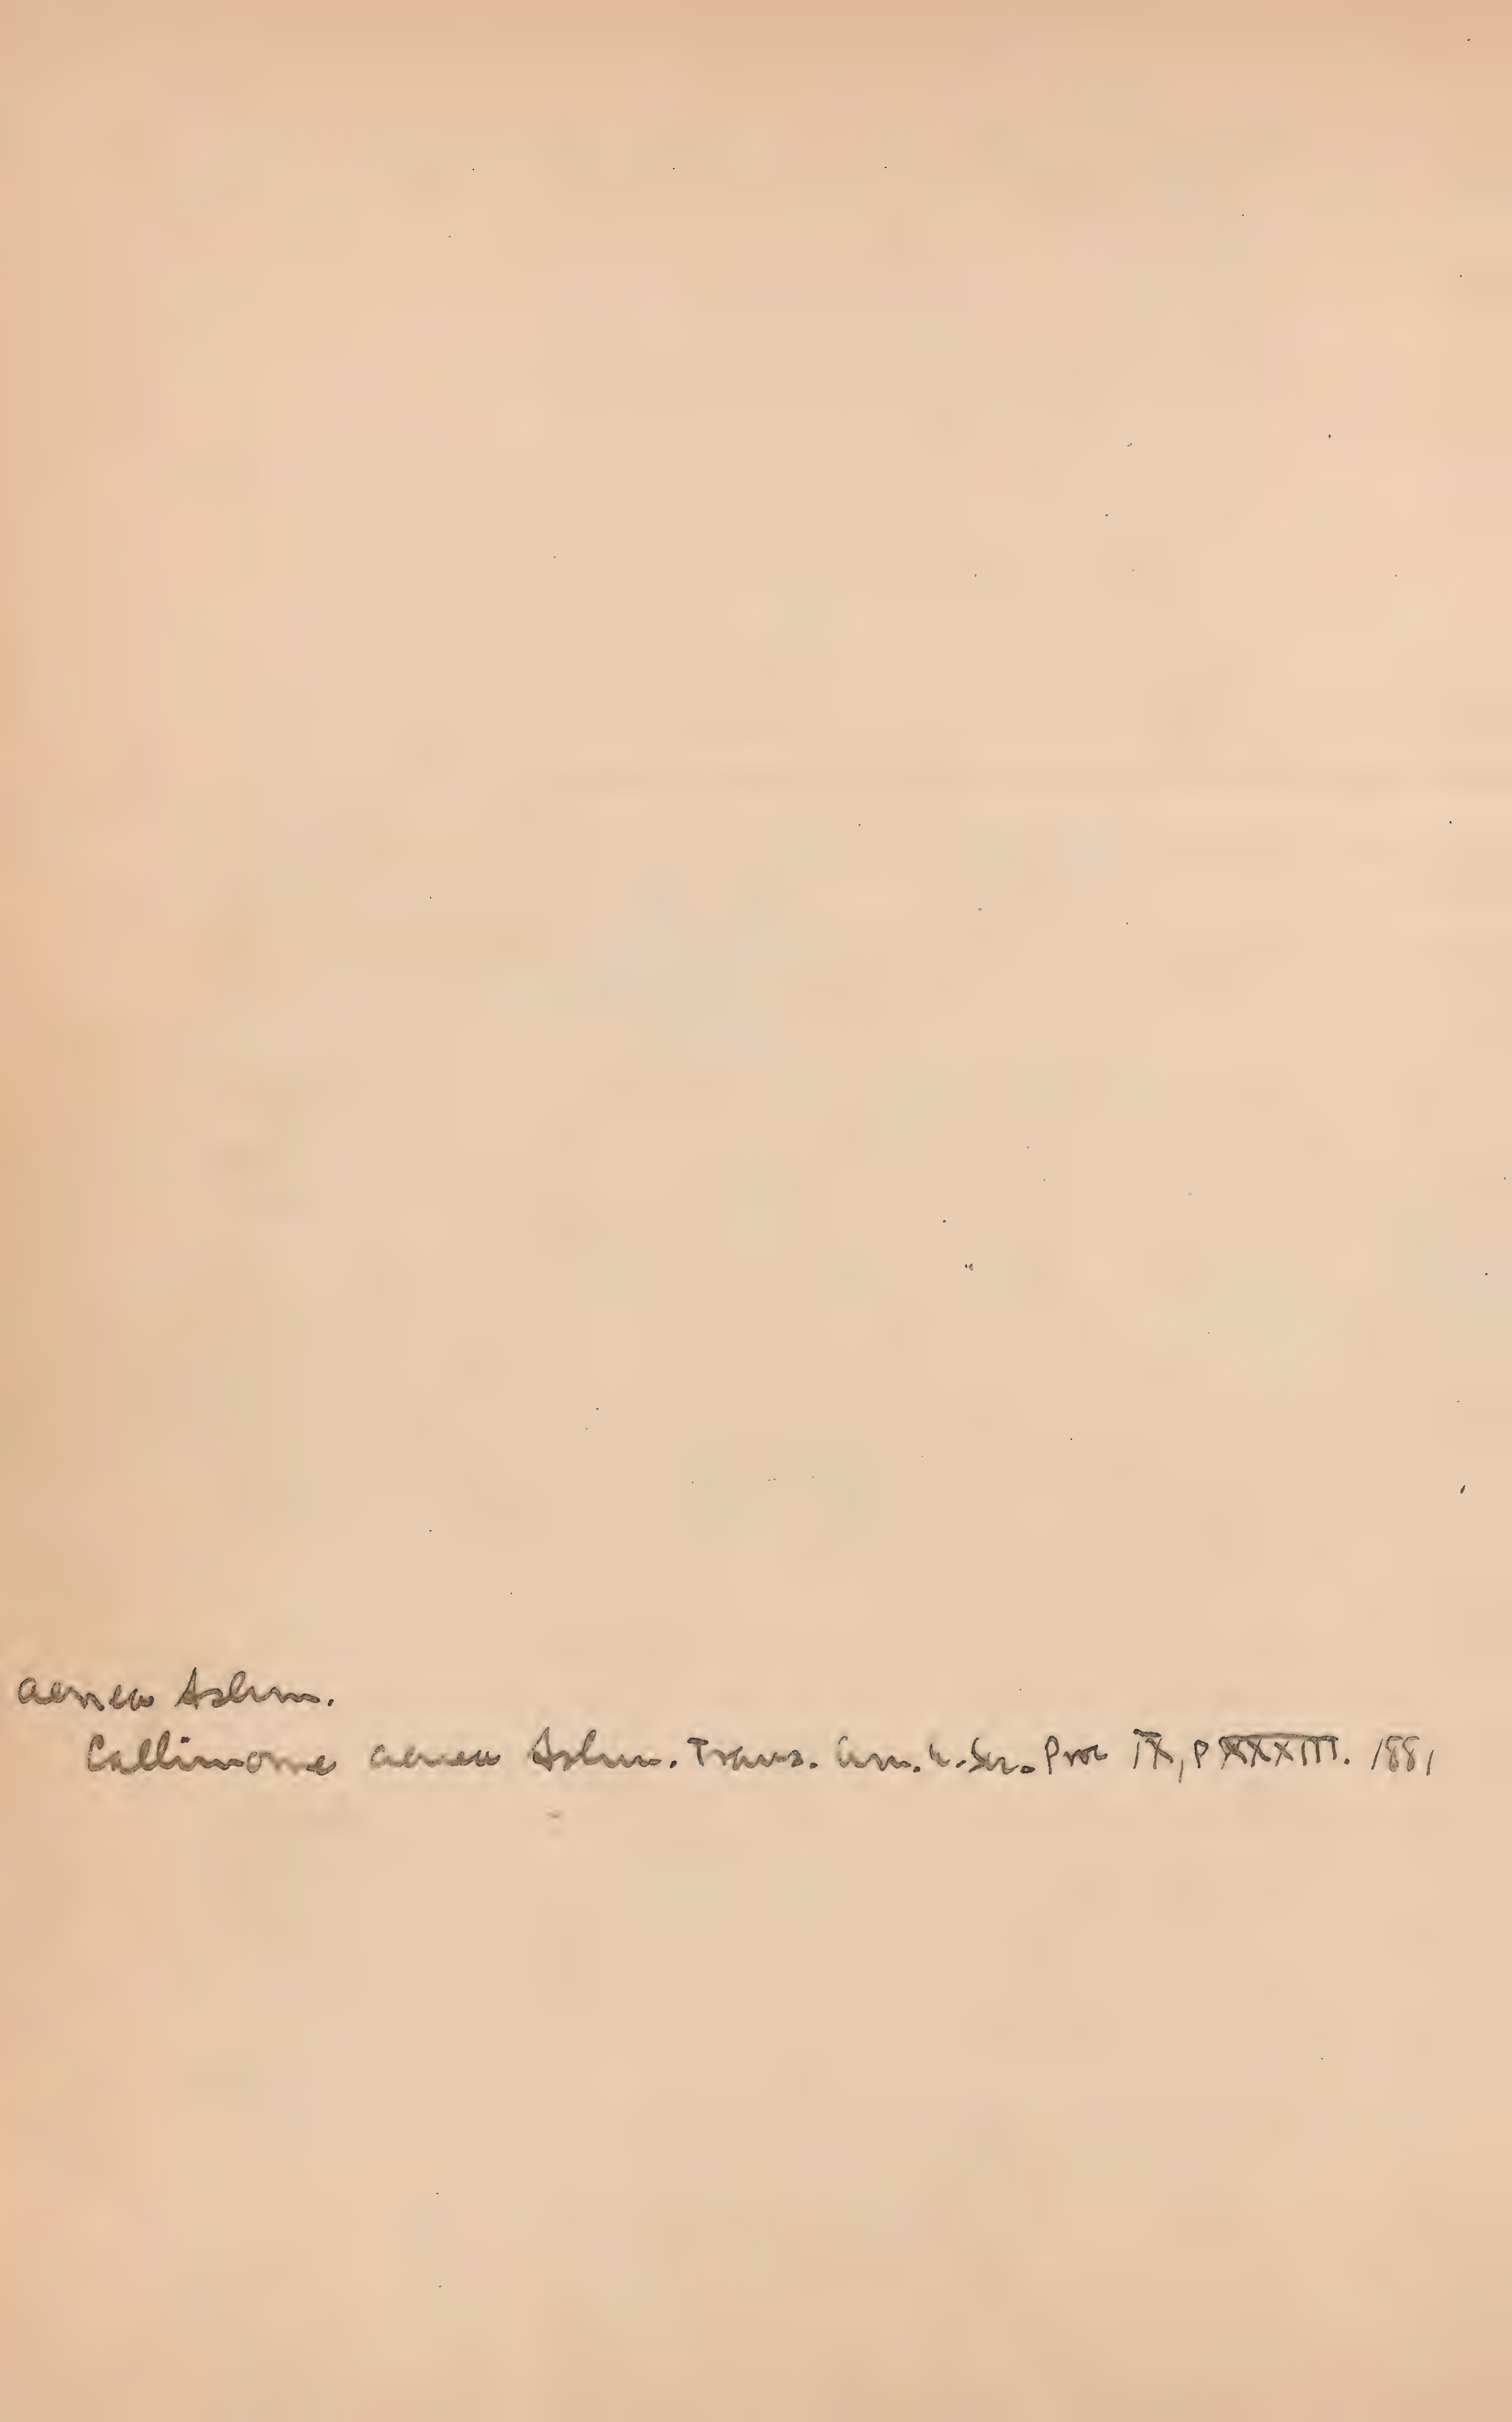 aenea Ashm.
Callimome aenea Ashm. Trans. Am. E. Soc. Proc IX, p XXXIII. 1881